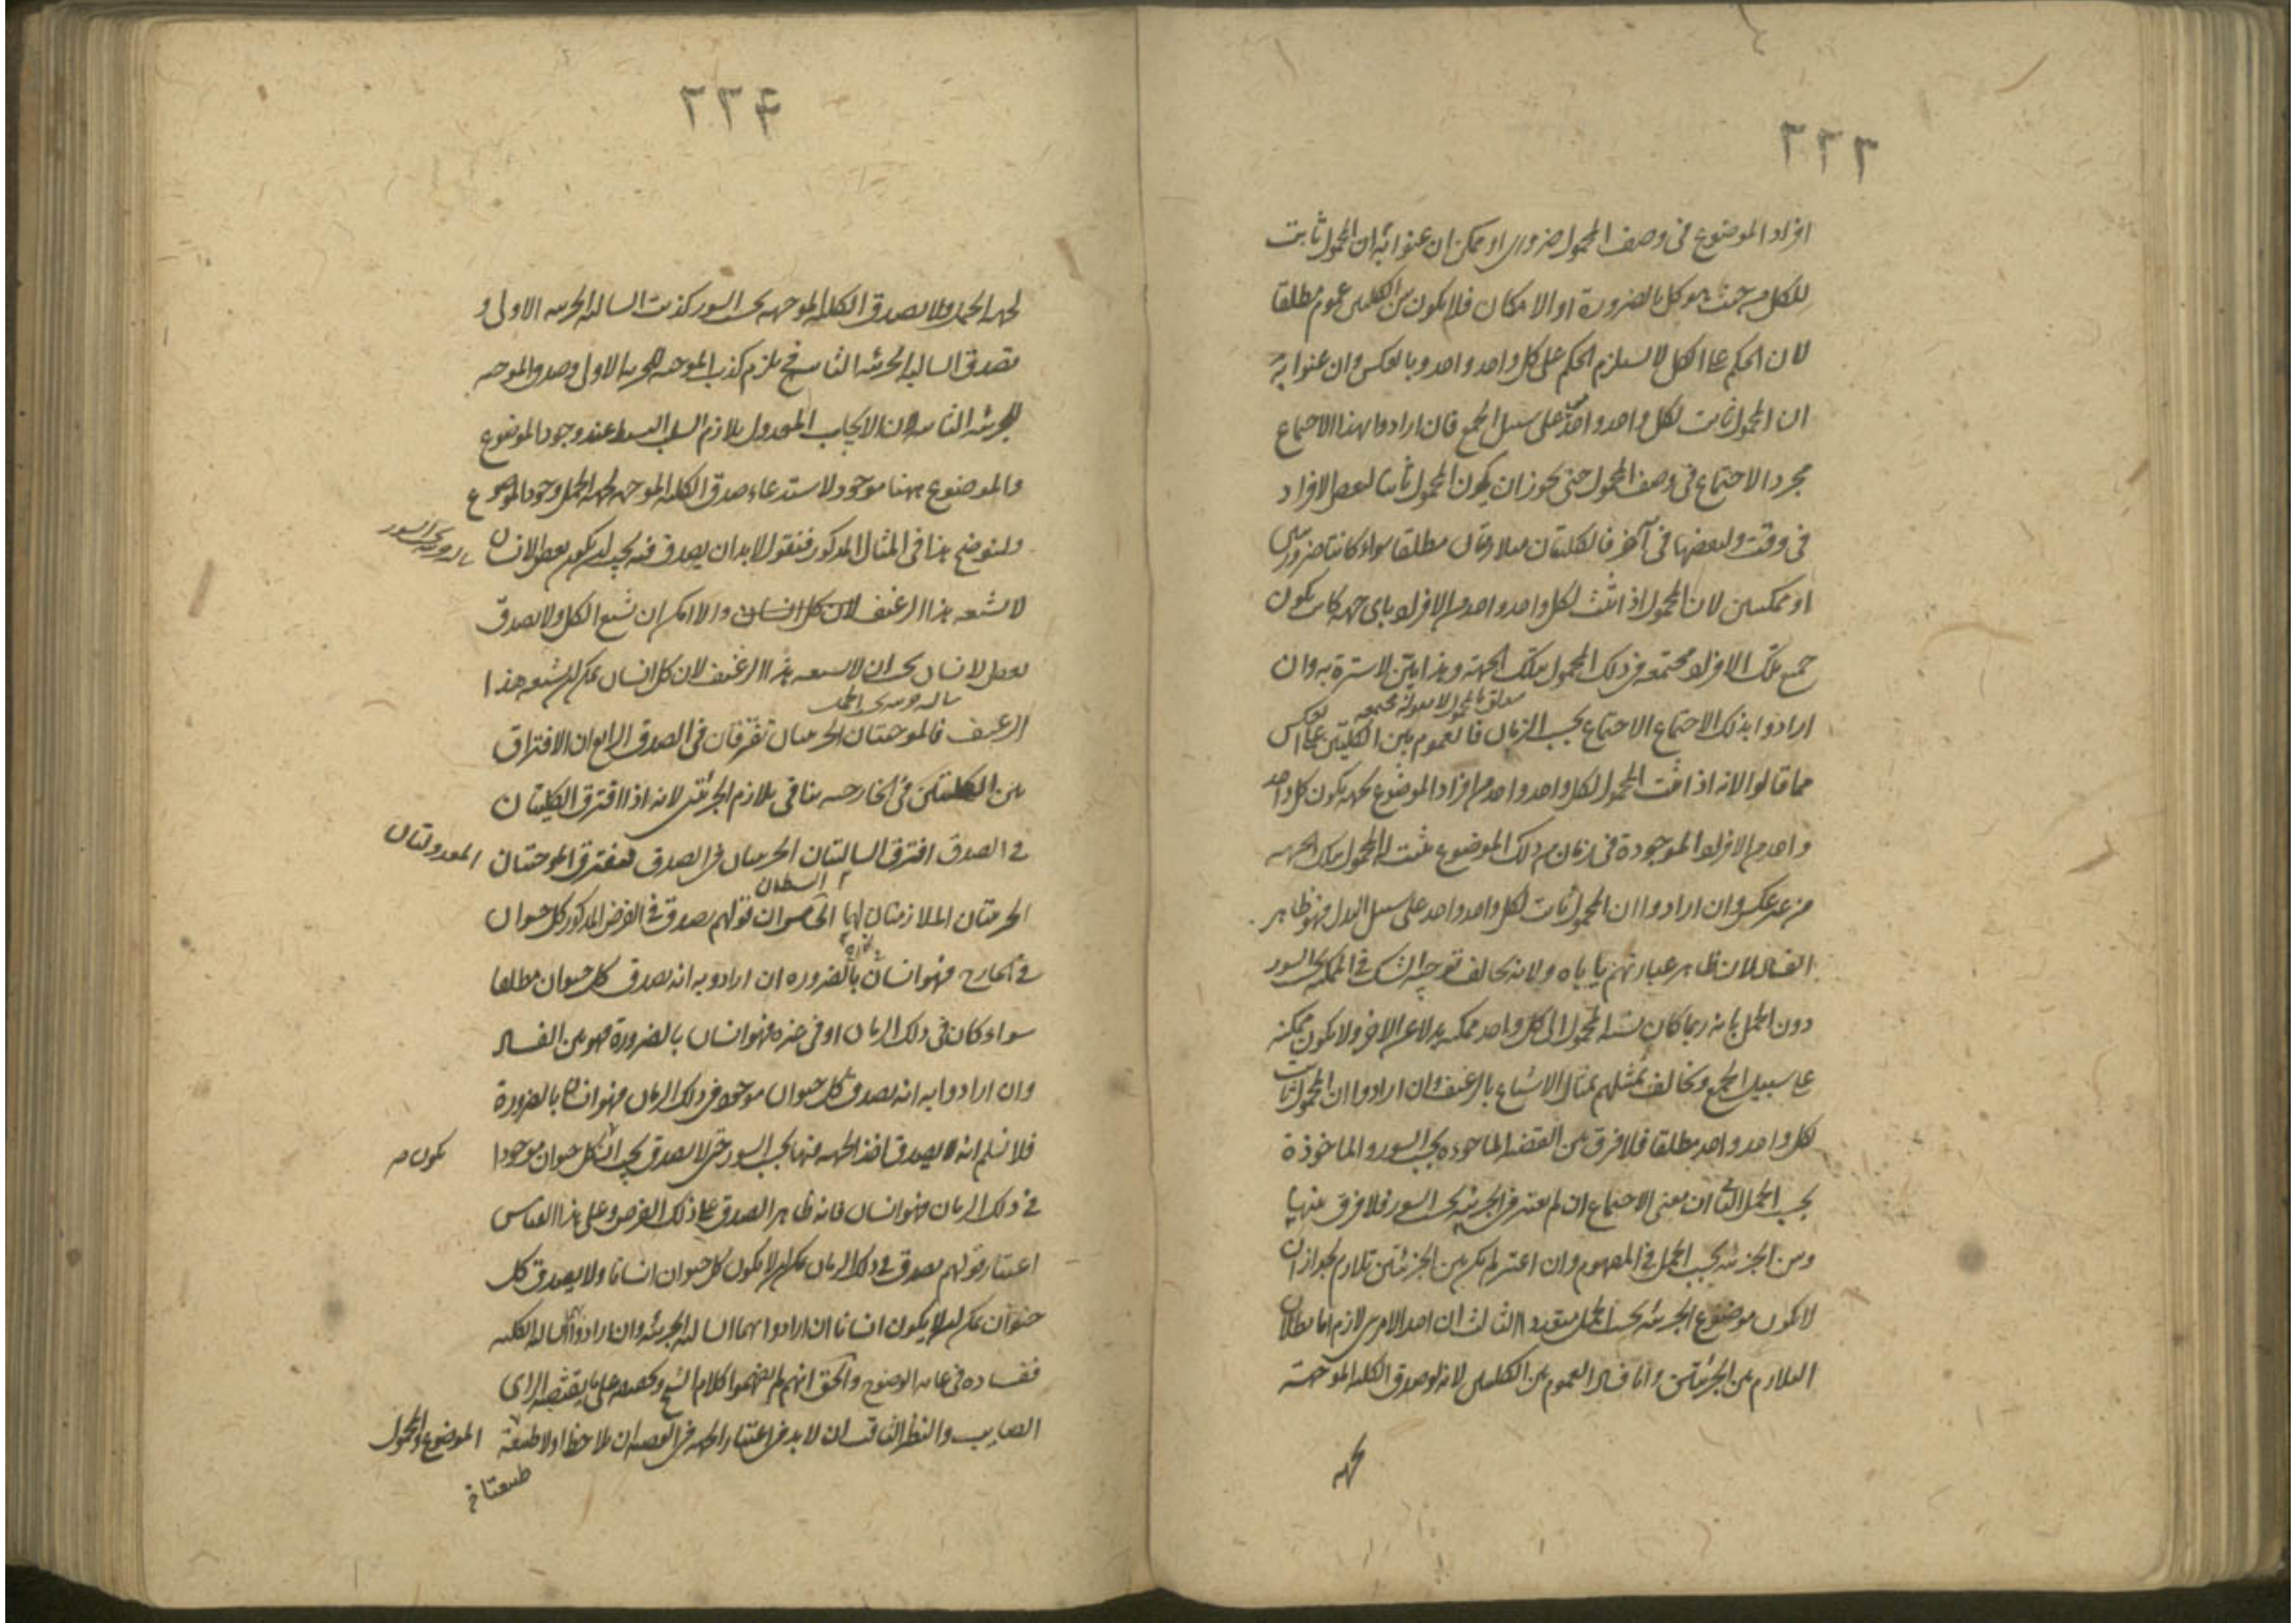 ٢٢٦
افراد الموضوع فى وصف المحمول ضرورى او ممكن ان عنوا به ان المحمول ثابت
للكل من حيث هو كل بالضرورة او الامكان فلا يكون بين الكليتين عموم مطلقا
لان الحكم على الكل لا يستلزم الحكم على كل واحد واحد وبالعكس وان عنوا به
ان المحمول ثابت لكل واحد واحد على سبيل الجمع فان ارادوا بهذا الاجتماع
مجرد الاجتماع فى وصف المحمول حتى يجوز ان يكون المحمول ثابتا لبعض الافراد
فى وقت ولبعضها فى آخر فالكليتان متلازمتان مطلقا سواء كانتا ضروريتين
او ممكنتين لان المحمول اذا ثبت لكل واحد واحد من الافراد باى جهة كانت يكون
جميع تلك الافراد مجتمعة فى ذلك المحمول بتلك الجهة وهذا بين لا سترة به وان
متعلق بالمحمول لا بقوله مجتمعة
ارادوا بذلك الاجتماع الاجتماع بحسب الزمان فالعموم بين الكليتين على عكس
ما قالوا لانه اذا ثبت المحمول لكل واحد واحد من افراد الموضوع بجهة يكون كل واحد
واحد من الافراد الموجودة فى زمان من ذلك الموضوع يثبت له المحمول بتلك الجهة
من غير عكس وان ارادوا ان المحمول ثابت لكل واحد واحد على سبيل البدل فهو ظاهر
الفساد لان ظاهر عبارتهم ياباه ولانه يخالف توجيه الشك فى الممكنة بحسب السور
دون الحمل بانه ربما كان نسبة المحمول الى كل واحد ممكنة بدلا عن الاخر ولا يكون ممكنة
على سبيل الجمع ويخالف تمثيلهم بمثال الاشباع بالرغيف وان ارادوا ان المحمول ثابت
لكل واحد واحد مطلقا فلا فرق بين القضية الماخوذة بحسب السور والماخوذة
بحسب الحمل الثانى ان معنى الاجتماع ان لم يعتبر فى الجزئية بحسب السور فلا فرق بينها
وبين الجزئية بحسب الحمل فى المفهوم وان اعتبر لم يكن بين الجزئيتين تلازم لجواز ان
لا يكون موضوع الجزئية بحسب الحمل متعددا الثالث ان احد الامرين لازم اما بطلان
التلازم بين الجزئيتين واما فساد العموم بين الكليتين لانه لو صدق الكلية الموجهة
بجهة
٢٢٧
بجهة الحمل ولا يصدق الكلية الموجهة بحسب السور كذبت السالبة الجزئية الاولى و
تصدق السالبة الجزئية الثانية فح يلزم كذب الموجبة الجزئية الاولى وصدق الموجبة
الجزئية الثانية لان الايجاب المعدول يلازم السلب البسيط عند وجود الموضوع
والموضوع ههنا موجود لاستدعاء صدق الكلية الموجهة بجهة الحمل وجود الموضوع
ولنوضح هذا فى المثال المذكور فنقول لا بد ان يصدق فيه يجب ان يكون بعض الانسان
لا يشبعه هذا الرغيف والا امكن ان يشبع الكل ولا يصدق
بعض الانسان يجب ان لا يشبعه هذا الرغيف لان كل انسان يمكن ان يشبعه هذا
الرغيف فالموجبتان الجزئيتان تفترقان فى الصدق الرابع ان الافتراق
بين الكليتين فى الخارجية ينافى تلازم الجزئيتين لانه اذا افترق الكليتان
فى الصدق افترق السالبتان الجزئيتان فى الصدق فيفترق الموجبتان المعدولتان
الجزئيتان الملازمتان لهما الخامس ان قولهم يصدق فى الفرض المذكور كل حيوان
فى الخارج فهو انسان بالضرورة ان ارادوا به انه يصدق كل حيوان مطلقا
سواء كان فى ذلك الزمان او فى غيره فهو انسان بالضرورة فهو بين الفساد
وان ارادوا به انه يصدق كل حيوان موجود فى ذلك الزمان فهو انسان بالضرورة
فلا نسلم انه لا يصدق اخذ الجهة فيها بحسب السور حتى لا يصدق يجب ان يكون كل حيوان موجودا
فى ذلك الزمان فهو انسان فانه ظاهر الصدق على ذلك الفرض وعلى هذا القياس
اعتبار قولهم يصدق فى ذلك الزمان يمكن ان لا يكون كل حيوان انسانا ولا يصدق كل
حيوان يمكن ان لا يكون انسانا ان ارادوا بهما السالبة الجزئية وان ارادوا السالبة الكلية
ففساده فى غاية الوضوح والحق انهم لم يفهموا كلام الشيخ وتحصيله على ما يقتضيه الراى
الصايب والنظر الثاقب ان لا بد فى اعتبار الجهة فى القضية ان يلاحظ اولا طبيعة الموضوع والمحمول